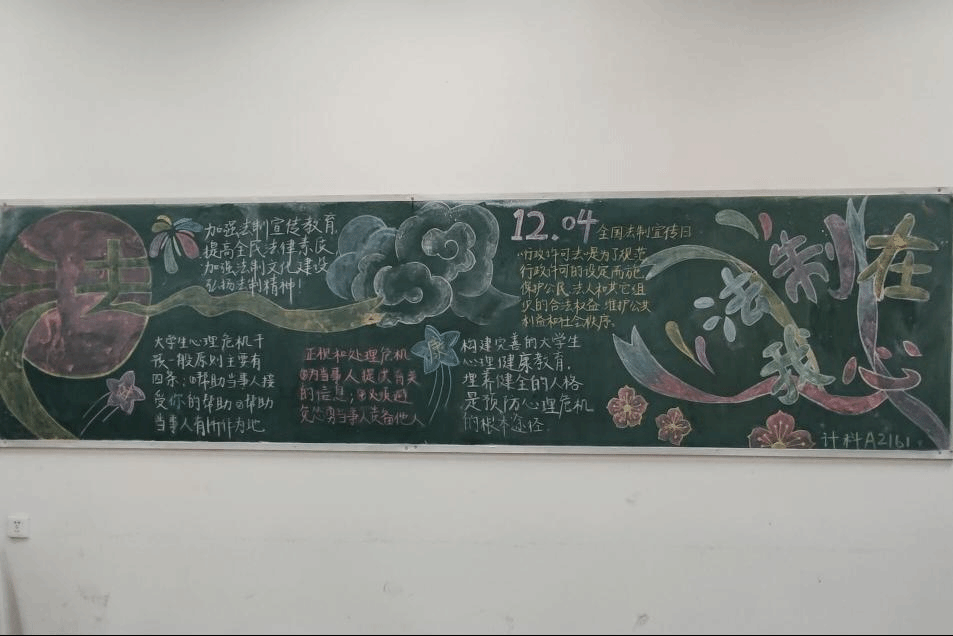 法
加强法制宣传教育,
提高全民法律素质
加强法制文化建设
弘扬法制精神!
大学生心理危机干
预一般原则主要有
四条:①帮助当事人接
受你的帮助②帮助
当事人有所作为地
正视和处理危机
③为当事人提供有关
的信息;④必须避
免怂恿当事人责备他人
12.04 全国法制宣传日
行政许可法是为了规范
行政许可的设定而施
保护公民、法人和其它组
织的合法权益 维护公共
利益和社会秩序。
构建完善的大学生
心理健康教育,
培养健全的人格
是预防心理危机
的根本途径
法制在
我心
计科A2161